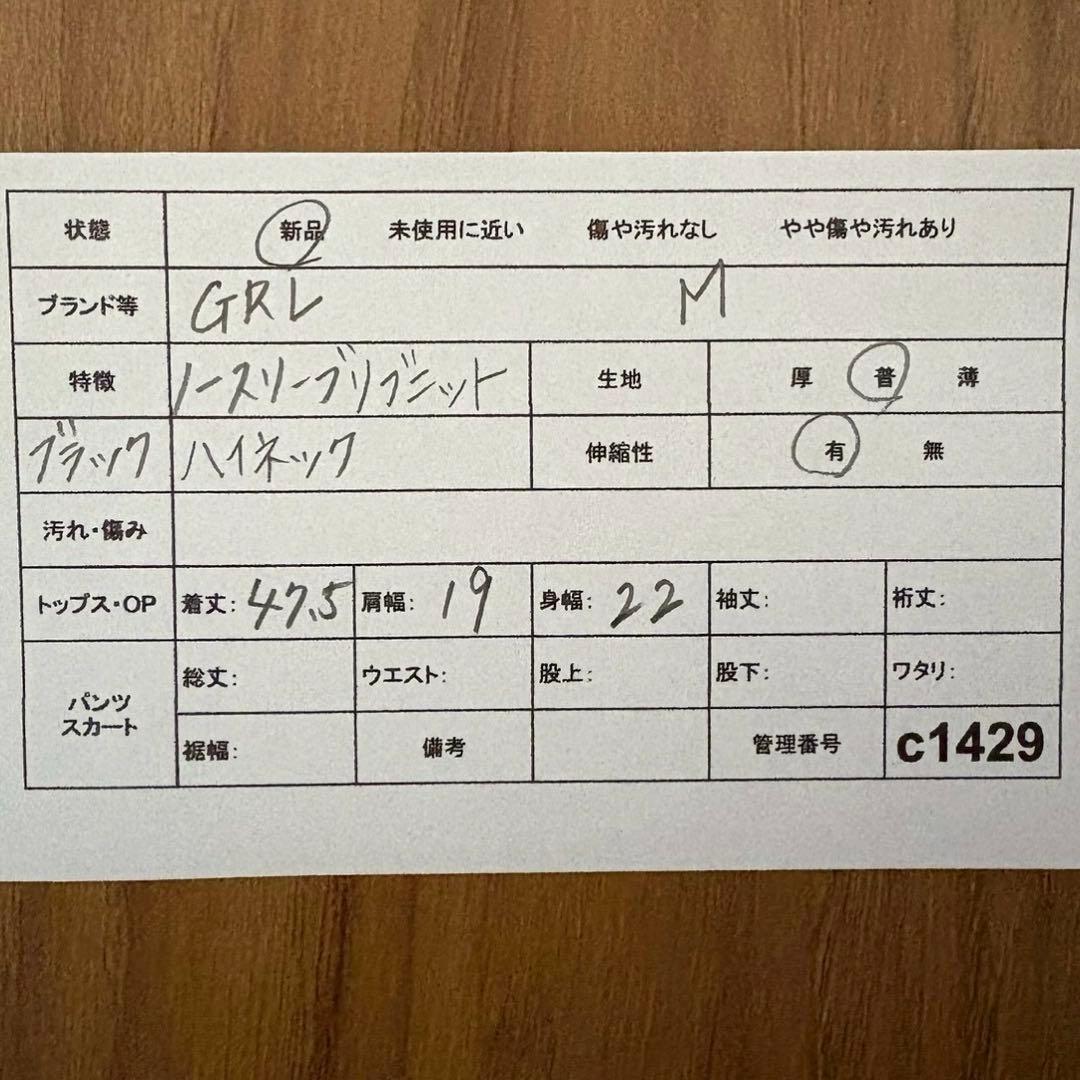 状態 新品 未使用に近い 傷や汚れなし やや傷や汚れあり
ブランド等 GRL M
特徴 ノースリーブリブニット 生地 厚 普 薄
ブラック ハイネック 伸縮性 有 無
汚れ・傷み
トップス・OP 着丈: 47.5 肩幅: 19 身幅: 22 袖丈: 裄丈:
パンツ
スカート
総丈: ウエスト: 股上: 股下: ワタリ:
裾幅: 備考 管理番号 c1429